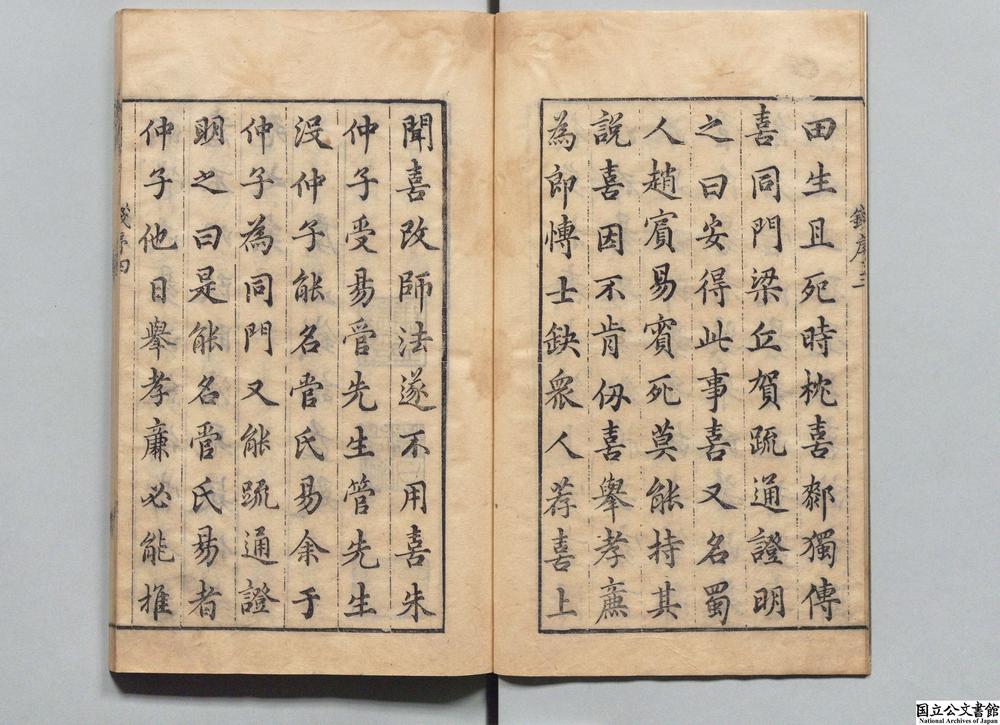 田生且死時枕喜䣛獨傳
喜同門梁丘賀疏通證明
之曰安得此事喜又名蜀
人趙賓易賓死莫能持其
說喜因不肯仞喜舉孝廉
為郎博士缺衆人荐喜上
聞喜改師法遂不用喜朱
仲子受易管先生管先生
沒仲子能名管氏易余于
仲子為同門又能疏通證
明之曰是能名管氏易者
仲子他日舉孝廉必能推
国立公文書館
National Archives of Japan